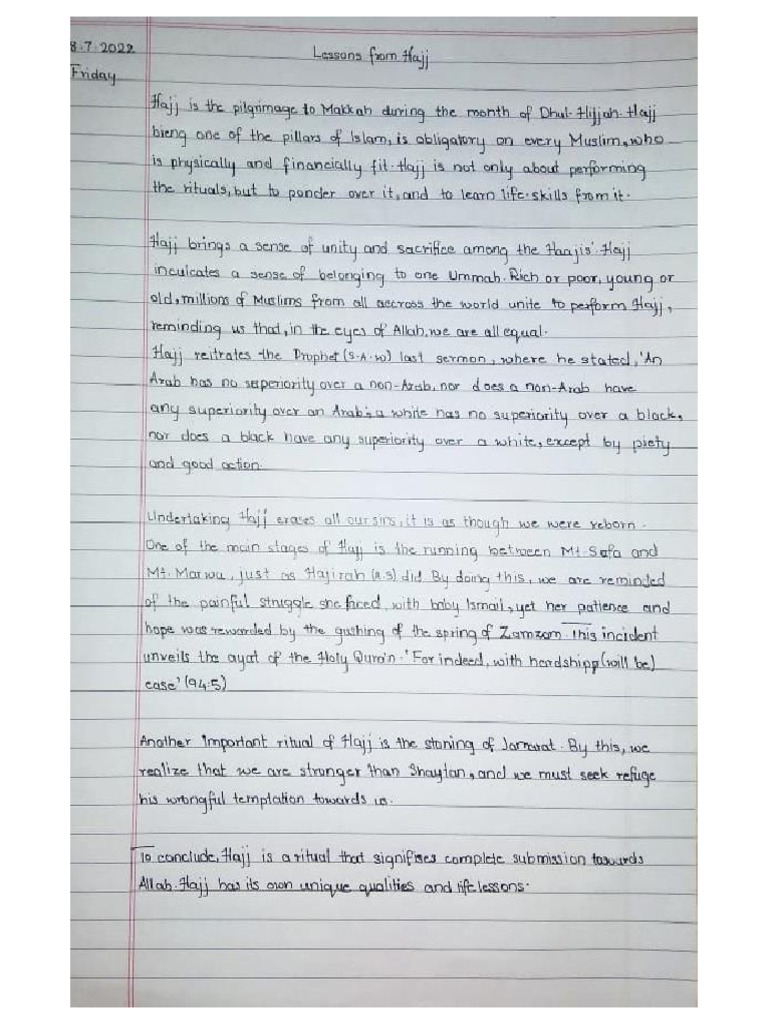 8.7.2022
Lessons from Hajj
Friday
Hajj is the pilgrimage to Makkah during the month of Dhul-Hijjah. Hajj
bieng one of the pillars of Islam, is obligatory on every Muslim, who
is physically and financially fit. Hajj is not only about performing
the rituals, but to ponder over it, and to learn life-skills from it.
Hajj brings a sense of unity and sacrifice among the Haajis'. Hajj
inculcates a sense of belonging to one Ummah. Rich or poor, young or
old, millions of Muslims from all accross the world unite to perform Hajj,
reminding us that, in the eyes of Allah, we are all equal.
Hajj reitrates the Prophet (S.A.W) last sermon, where he stated, 'An
Arab has no superiority over a non-Arab, nor does a non-Arab have
any superiority over an Arab; a white has no superiority over a black,
nor does a black have any superiority over a white, except by piety
and good action.
Undertaking Hajj erases all our sins, it is as though we were reborn.
One of the main stages of Hajj is the running between Mt. Safa and
Mt. Marwa, just as Hajirah (a.s) did. By doing this, we are reminded
of the painful struggle she faced, with baby Ismail, yet her patience and
hope was rewarded by the gushing of the spring of Zamzam. This incident
unveils the ayat of the Holy Qura'n. 'For indeed, with hardshipp (will be)
ease' (94:5)
Another important ritual of Hajj is the stoning of Jamarat. By this, we
realize that we are stronger than Shaytan, and we must seek refuge
his wrongful temptation towards us.
To conclude, Hajj is a ritual that signifises complete submission towards
Allah. Hajj has its own unique qualities and life lessons.